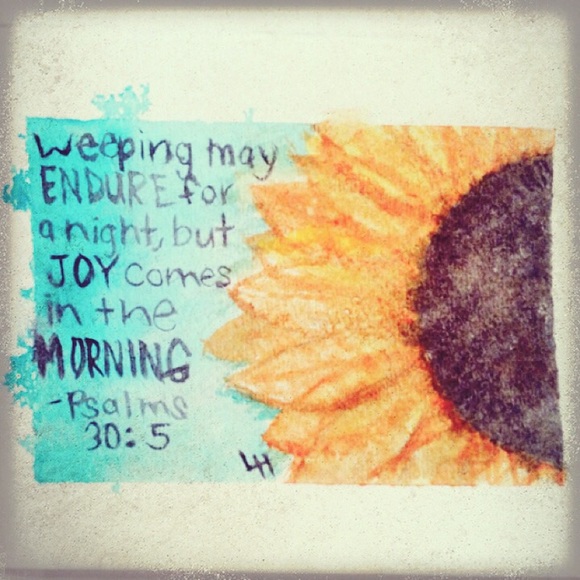 weeping may
ENDURE for
a night, but
JOY comes
in the
MORNING
-Psalms
30:5
LH